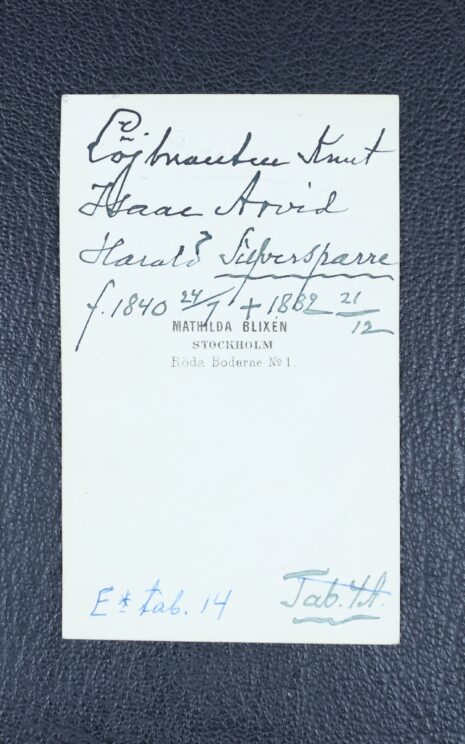 Löjtnanten Knut
Isaac Arvid
Harald Silfversparre
f. 1840 24/7 + 1882 21/12
MATHILDA BLIXÉN
STOCKHOLM
Röda Boderne No 1.
E* tab. 14
Tab.